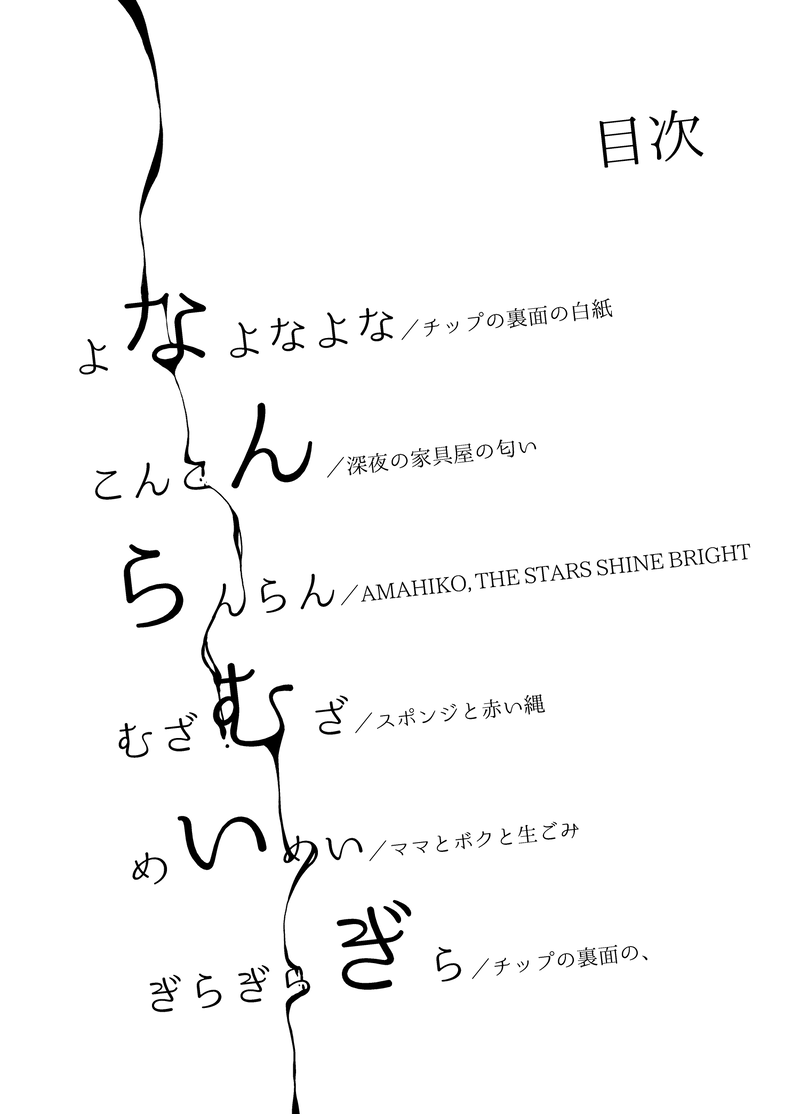 目次
よなよなよな／チップの裏面の白紙
こんとん／深夜の家具屋の匂い
らんらん／AMAHIKO, THE STARS SHINE BRIGHT
むざむざ／スポンジと赤い縄
めいめい／ママとボクと生ごみ
ぎらぎらぎら／チップの裏面の、